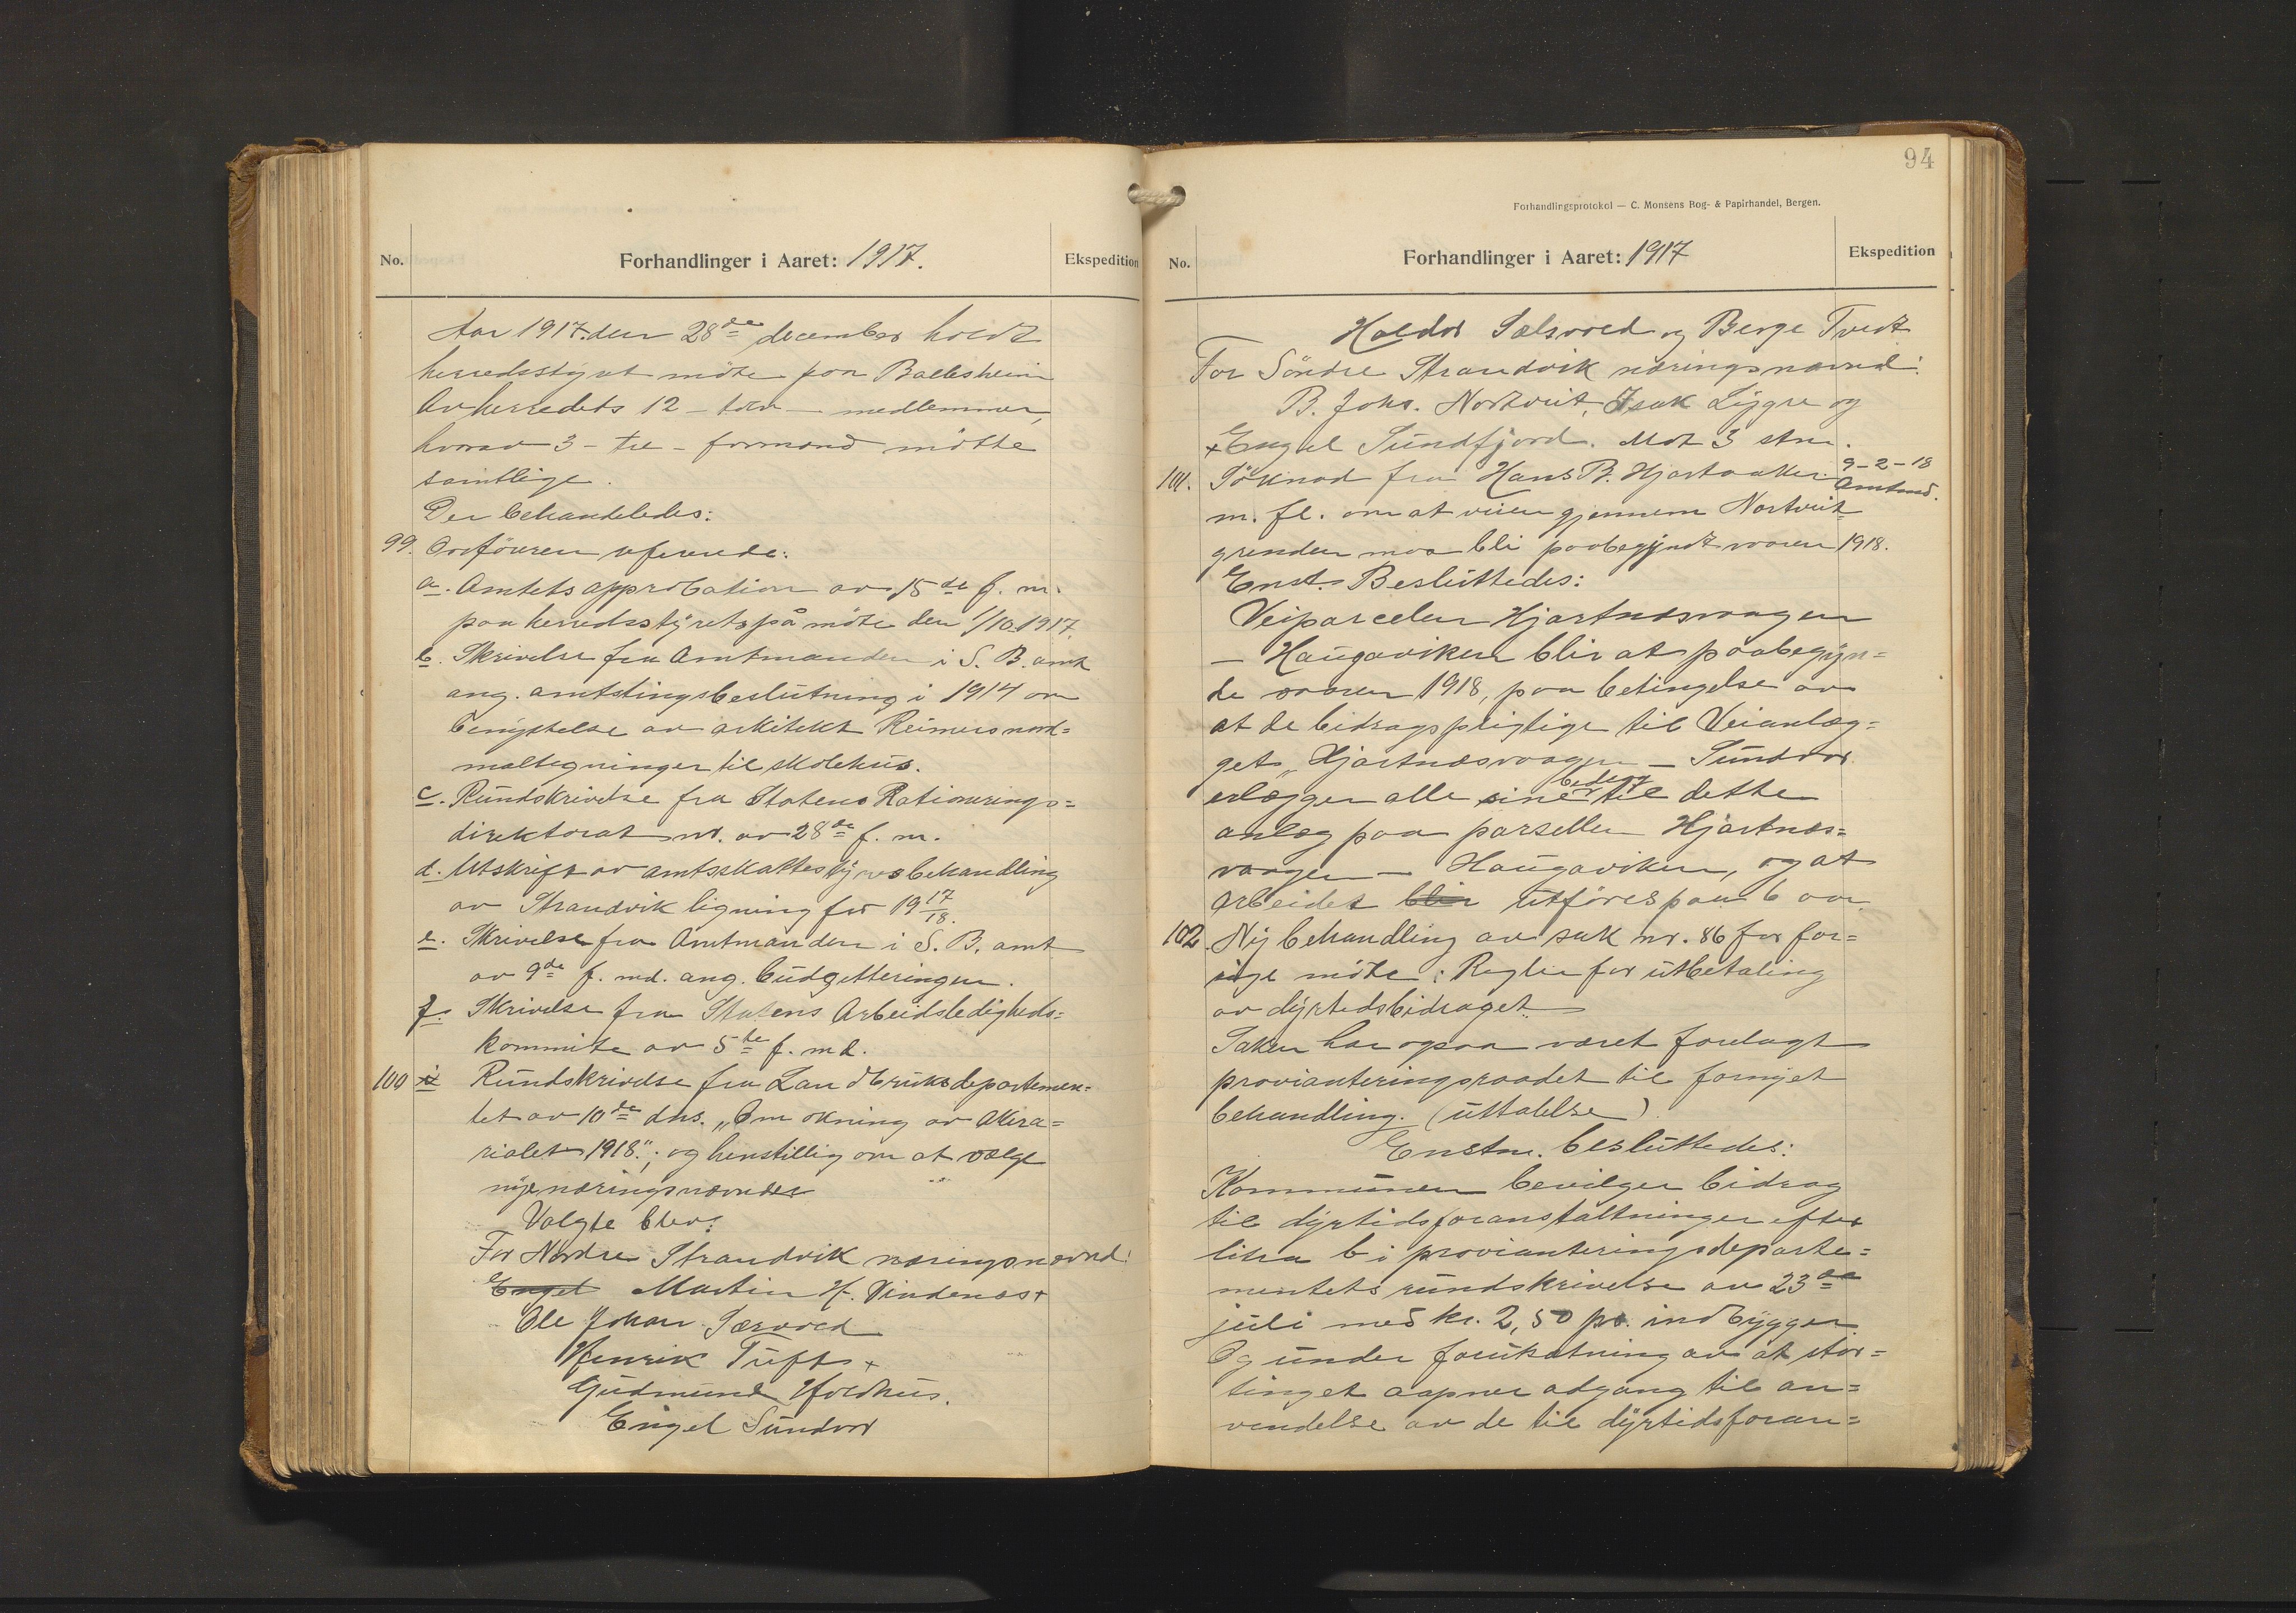 No.
Forhandlinger i Aaret: 1917.
Ekspedition
Aar 1917. den 28de december holdt
herredsstyret möte paa Baldersheim
Av herredets 12 - tolv - medlemmer,
hvorav 3 - tre - formænd mötte
samtlige.
Der behandledes:
99. Ordföreren refererede:
a. Amtets approbation av 15de f. m.
paa herredsstyrets på möte den 1/10 1917.
b. Skrivelse fra Amtmanden i S. B. amt
ang. amtstingsbeslutning i 1914 om
benyttelse av arkitekt Reimers nord=
maltegninger til skolehus.
c. Rundskrivelse fra Statens Rationerings=
direktorat nr. av 28de f. m.
d. Utskrift av amtsskattestyres behandling
av Strandvik ligning for 19 17/18.
e. Skrivelse fra Amtmanden i S. B. amt
av 9de f. md. ang. budgetteringen.
f. Skrivelse fra Statens Arbeidsledigheds=
kommite av 5te f. md.
100 Rundskrivelse fra Landbruksdepartemen=
tet av 10de ds. „Om økning av Akera=
rialet 1918."; og henstillig om at vælge
nye næringsnævnder
Valgte blev:
For Nordre Strandvik næringsnævnd:
Engel Martin H. Vindenes +
Ole Johan Særvold
Henrik Tufte +
Gudmund Holdhus.
Engel Sundvor
94
Forhandlingsprotokol — C. Monsens Bog- & Papirhandel, Bergen.
No.
Forhandlinger i Aaret: 1917
Ekspedition
Haldor Sælsvold og Berge Tvedt
For Söndre Strandvik næringsnævnd:
B. Johs. Nortveit, Isak Lygre og
+ Engel Sundfjord. Mot 3 stm.
101. Söknad fra Hans B. Hjartaaker
9-2-18
Amtmd.
m. fl. om at veien gjennem Nortveit
grenden maa bli paabegyndt vaaren 1918.
Enst. Besluttedes:
Veiparcelen Hjartnæsvaagen
- Haugaviken blir at paabegyn=
de vaaren 1918, paa betingelse av
at de bidragspligtige til Veianlæg=
get „Hjartnæsvaagen - Sundvor
erlægger alle sine bidrag til dette
anlæg paa parsellen Hjartnæs=
vaagen - Haugaviken, og at
Arbeidet blir utföres paa 6 aar.
102. Ny behandling av sak nr. 86 for for=
rige möte: Regler for utbetaling
av dyrtidsbidraget.
Saken har ogsaa været forelagt
provianteringsraadet til fornyet
behandling. (uttalelse).
Enstm. besluttedes:
Kommunen bevilger bidrag
til dyrtidsforanstaltninger efter
litra b i provianteringsdeparte=
mentets rundskrivelse av 23de
juli med kr. 2,50 pr. indbygger.
Og under forutsætning av at stor=
tinget aapner adgang til an=
vendelse av de til dyrtidsforan=